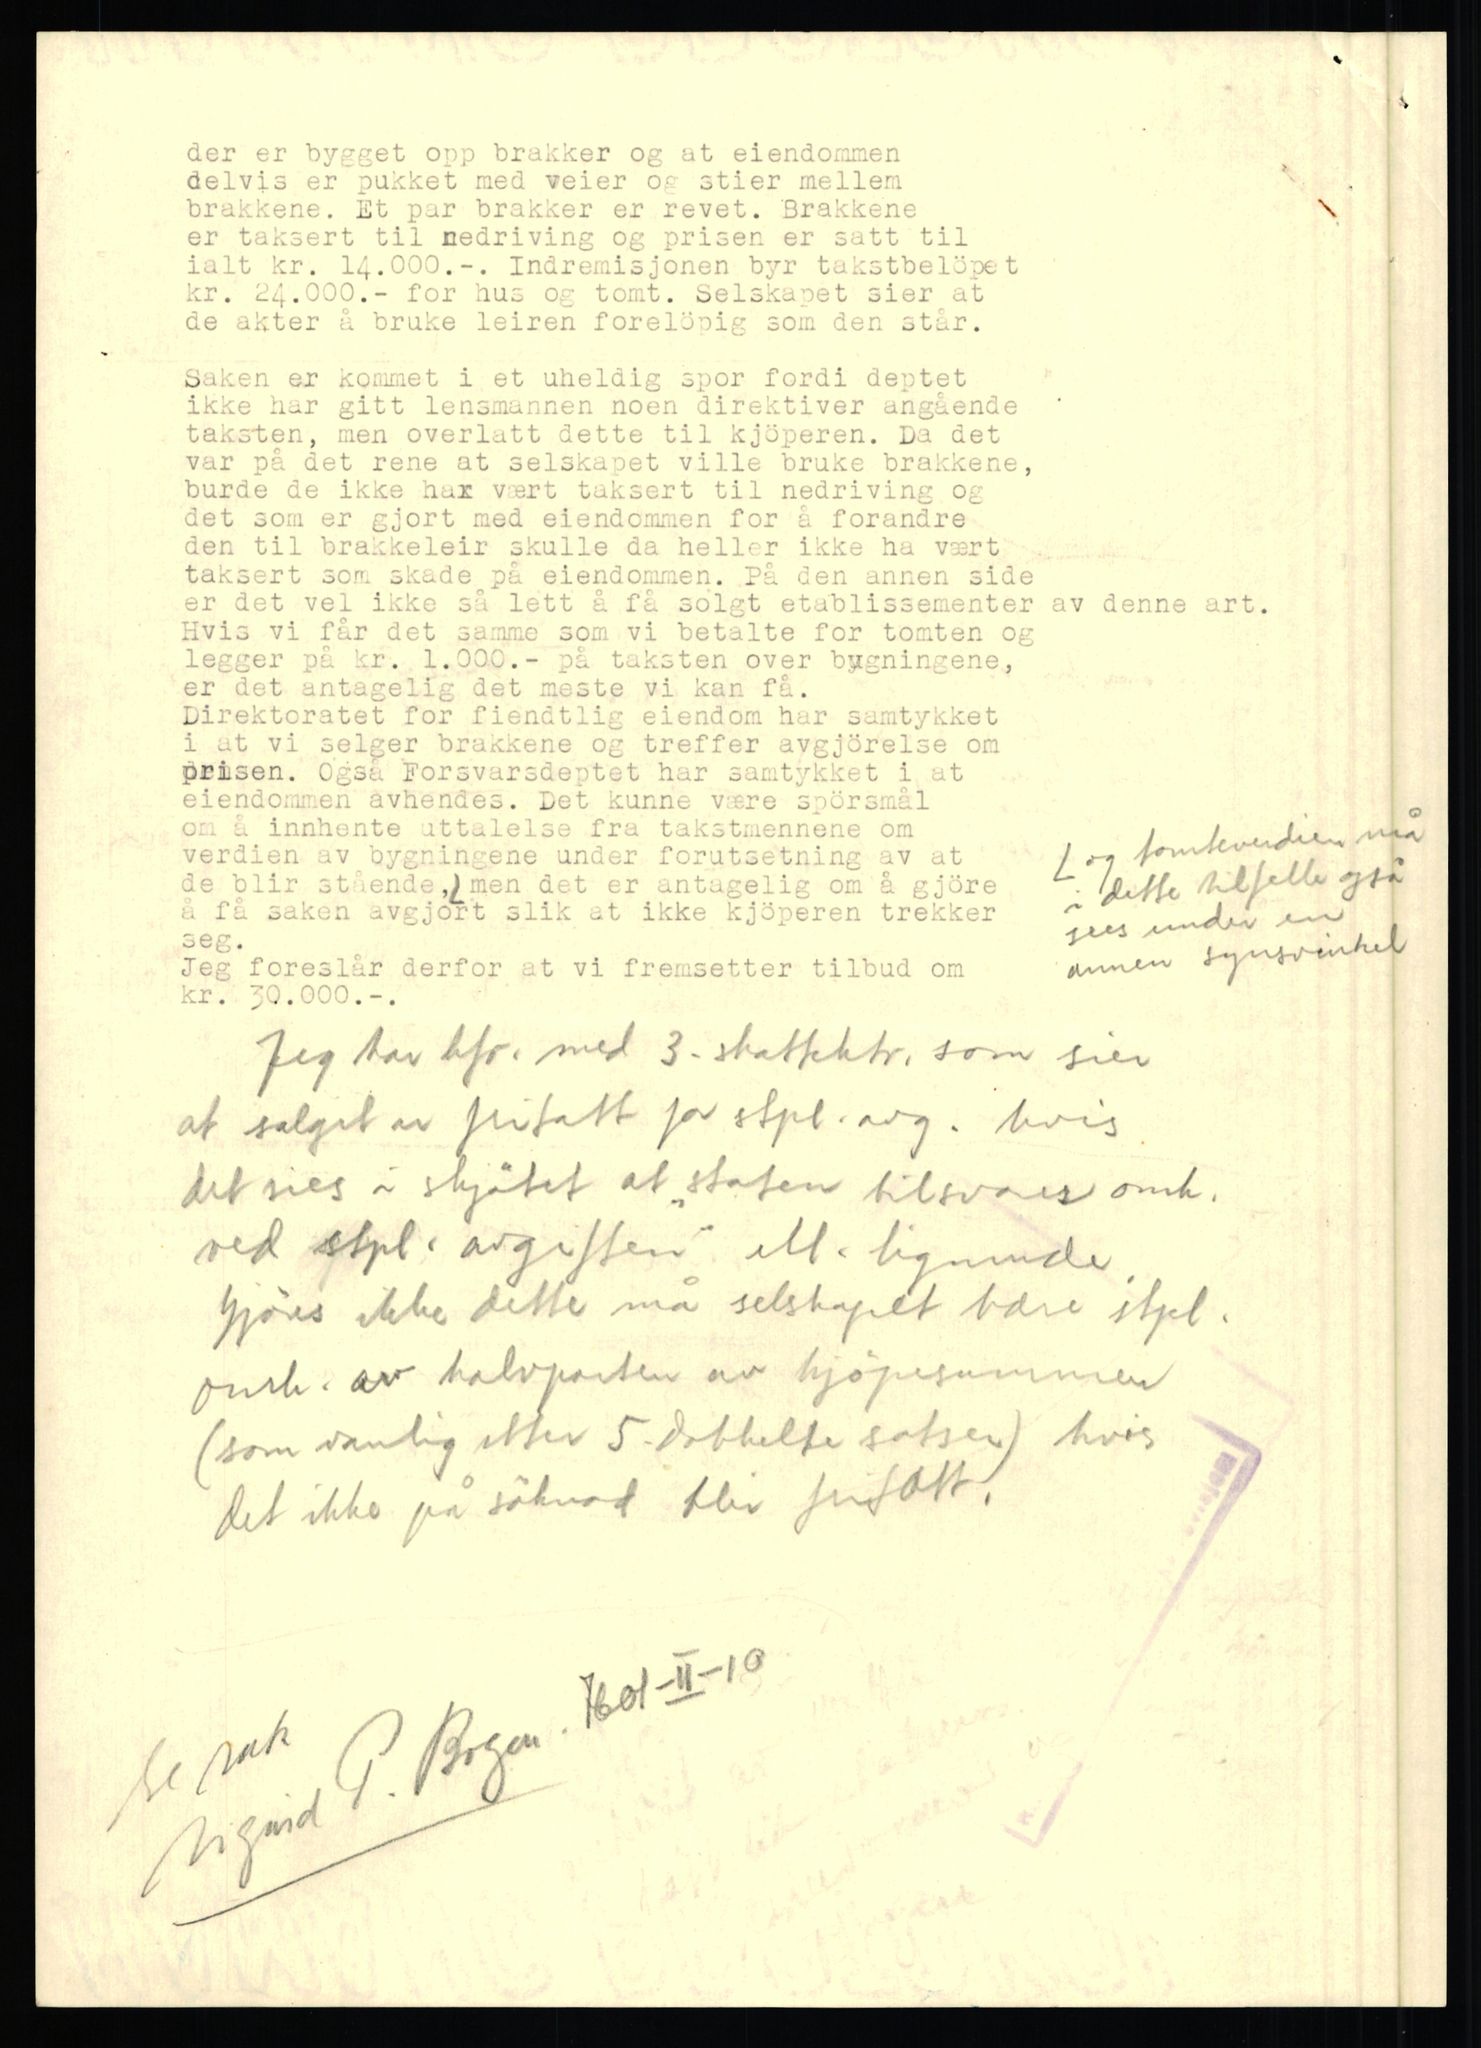 der er bygget opp brakker og at eiendommen
delvis er pukket med veier og stier mellem
brakkene. Et par brakker er revet. Brakkene
er taksert til nedriving og prisen er satt til
ialt kr. 14.000.-. Indremisjonen byr takstbelöpet
kr. 24.000.- for hus og tomt. Selskapet sier at
de akter å bruke leiren forelöpig som den står.
Saken er kommet i et uheldig spor fordi deptet
ikke har gitt lensmannen noen direktiver angående
taksten, men overlatt dette til kjöperen. Da det
var på det rene at selskapet ville bruke brakkene,
burde de ikke hax vært taksert til nedriving og
det som er gjort med eiendommen for å forandre
den til brakkeleir skulle da heller ikke ha vært
taksert som skade på eiendommen. På den annen side
er det vel ikke så lett å få solgt etablissementer av denne art.
Hvis vi får det samme som vi betalte for tomten og
legger på kr. 1.000.- på taksten over bygningene,
er det antagelig det meste vi kan få.
Direktoratet for fiendtlig eiendom har samtykket
i at vi selger brakkene og treffer avgjörelse om
prisen. Også Forsvarsdeptet har samtykket i at
eiendommen avhendes. Det kunne være spörsmål
om å innhente uttalelse fra takstmennene om
verdien av bygningene under forutsetning av at
de blir stående, men det er antagelig om å gjöre
å få saken avgjort slik at ikke kjöperen trekker
seg.
og tomteverdien må
i dette tilfelle også
sees under en
annen synsvinkel
Jeg foreslår derfor at vi fremsetter tilbud om
kr. 30.000.-.
Jeg har kfr. med 3. skattektr. som sier
at salget er fritatt for stpl. avg. hvis
det sies i skjötet at „staten tilsvarer omk.
ved stpl. avgiften" ell. lignende.
Gjöres ikke dette må selskapet bære stpl.
omk. av halvparten av kjöpesummen
(som vanlig etter 5-dobbelte satser) hvis
det ikke på söknad blir fritatt.
Se sak
Sigurd P. Bogen. 7601-II-10